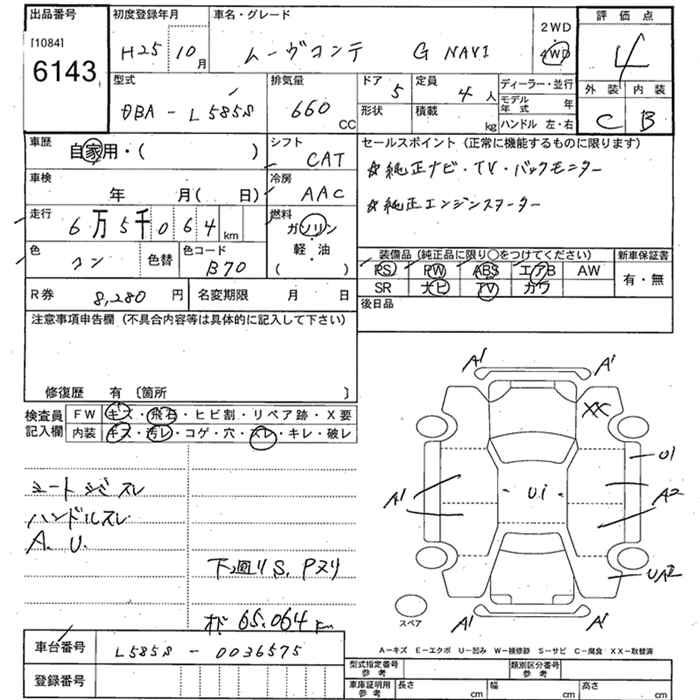 出品番号
[1084]
6143
初度登録年月
H25 10月
車名・グレード
ムーヴコンテ G NAVI
2WD
4WD
評価点
4
外装 内装
C B
型式
DBA - L585S
排気量
660 CC
ドア 5
定員 4人
形状
積載 kg
ディーラー・並行
モデル年式 年
ハンドル 左・右
車歴
自家用・( )
シフト
CAT
車検
年 月( 日)
冷房
AAC
走行
6万5千064km
燃料
ガソリン
・
軽・油
( )
色
コン
色替
色コード
B70
R券 8,280円
名変期限 月 日
セールスポイント(正常に機能するものに限ります)
☆純正ナビ・TV・バックモニター
☆純正エンジンスターター
装備品(純正品に限り○をつけてください)
新車保証書
PS PW ABS エアB AW
SR ナビ TV カワ
有・無
後日品
注意事項申告欄(不具合内容等は具体的に記入して下さい)
修復歴 有〔箇所 〕
検査員記入欄
FW キズ・飛石・ヒビ割・リペア跡・X要
内装 キズ・汚レ・コゲ・穴・スレ・キレ・破レ
シートシミスレ
ハンドルスレ
A. U.
下廻りS. Pヌリ
オド 65.064km
A1 A1
XX
U1
A1
U1
A2
UA2
A1 A1
スペア
A-キズ E-エクボ U-凹み W-補修跡 S-サビ C-腐食 XX-取替済
車台番号 L585S - 0036575
登録番号
型式指定番号 参考
類別区分番号 参考
車庫証明用 参考
長さ cm
幅 cm
高さ cm